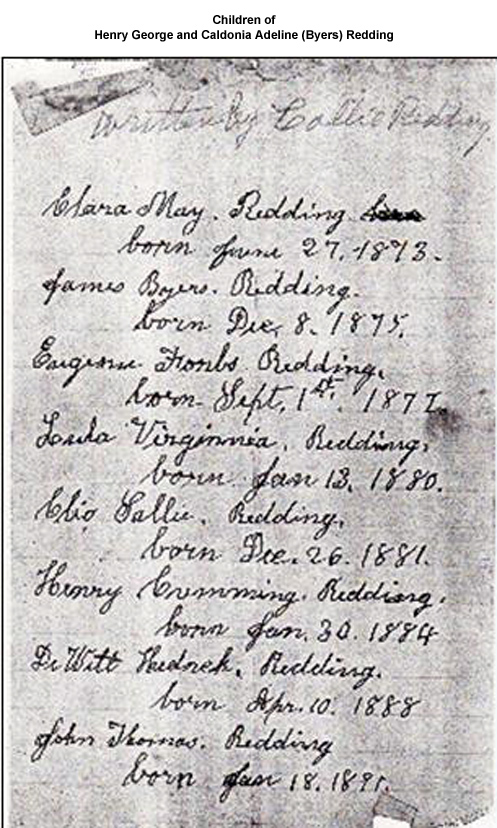 Children of
Henry George and Caldonia Adeline (Byers) Redding
written by Callie Redding
Clara May. Redding born
born June 27, 1873.
James Byers. Redding.
born Dec, 8. 1875.
Eugene Redding,
born Sept, 1st. 1877.
Virginnia, Redding,
born Jan 13, 1880.
Clio Sallie, Redding,
born Dec. 26. 1881.
Henry Cumming. Redding,
born Jan. 30. 1884
DeWitt Redding.
born Apr. 10. 1888
John Thomas. Redding
born Jan 18, 1891.